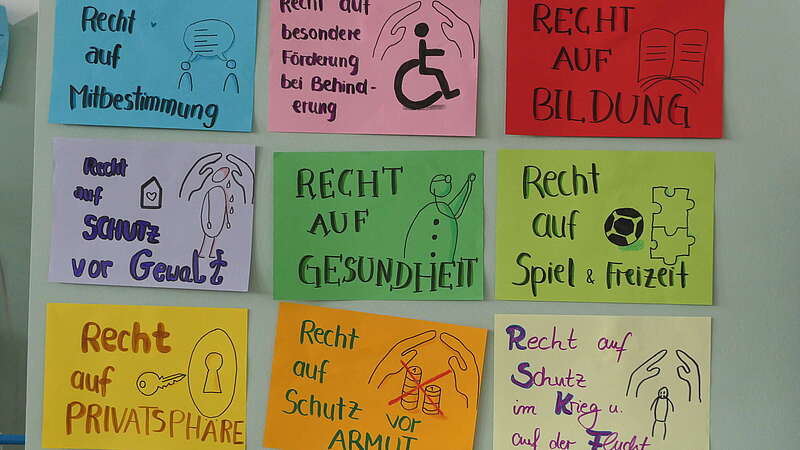 Recht
auf
Mitbestimmung
Recht auf
besondere
Förderung
bei Behind-
erung
RECHT
AUF
BILDUNG
Recht
auf
SCHUTZ
vor Gewalt
RECHT
AUF
GESUNDHEIT
Recht
auf
Spiel & Freizeit
Recht
auf
PRIVATSPHÄRE
Recht
auf
Schutz vor
ARMUT
Recht auf
Schutz
im Krieg u.
auf der Flucht